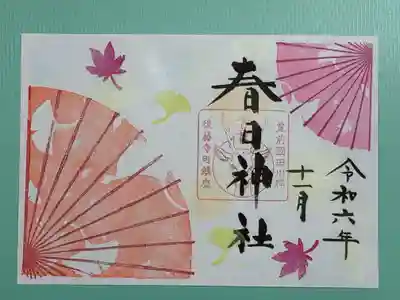 令和六年
十一月
春日神社
豊前國田川郡
後藤寺町鎮座